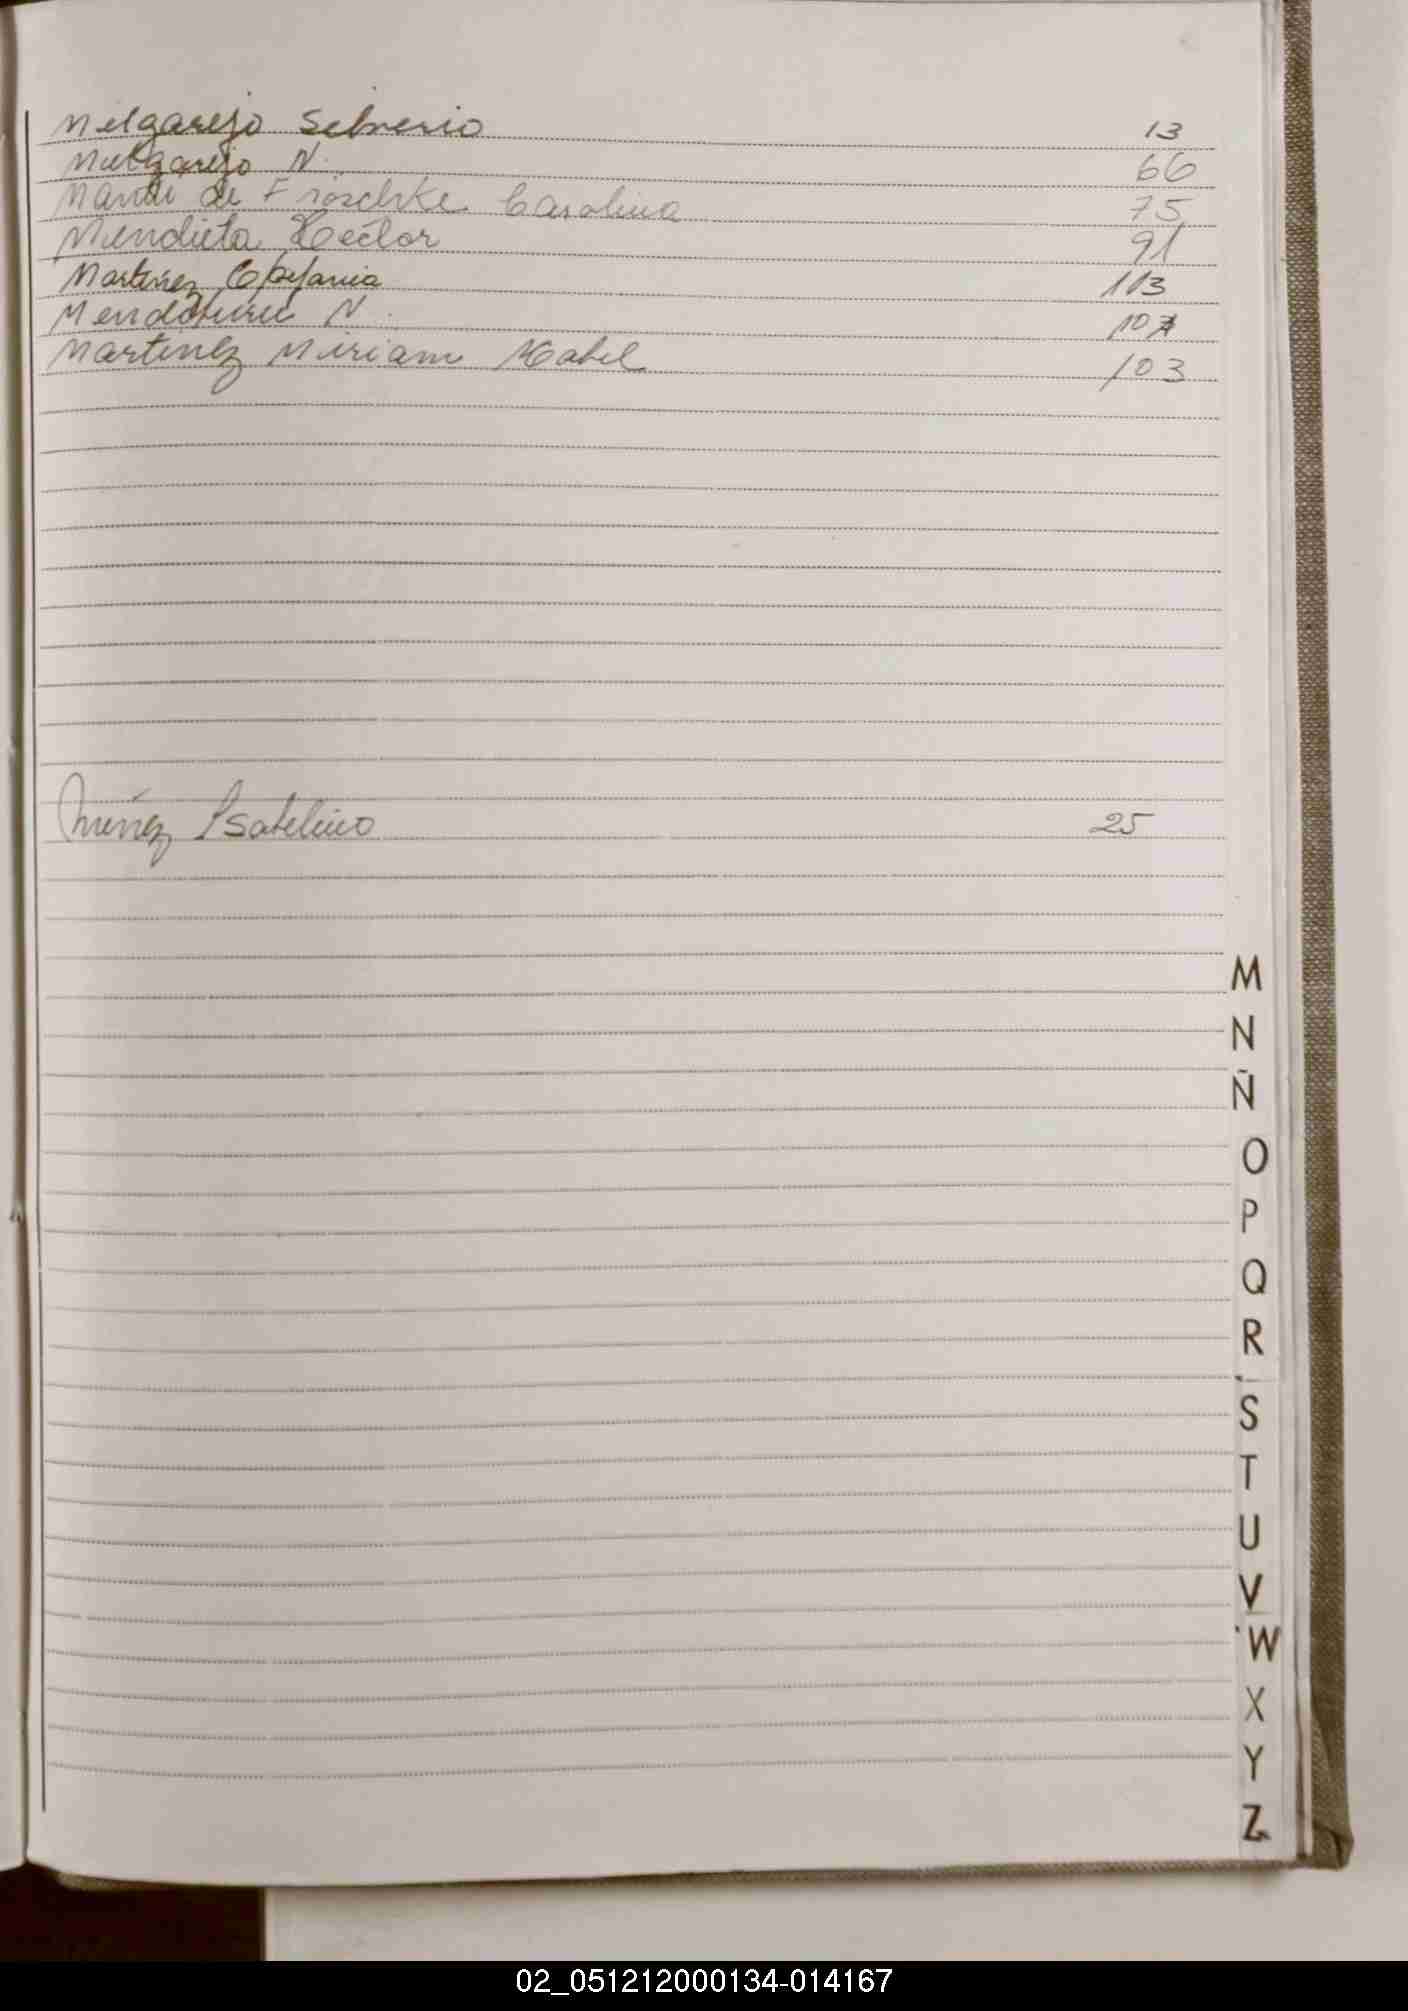 Melgarejo Silverio 13
Melgarejo N. 66
Mandi de Fröschke Carolina 75
Mendieta Hector 91
Martinez Epifania 113
N. 107
Martinez Miriam Mabel 103
Núñez Isabelino 25
M
N
Ñ
O
P
Q
R
S
T
U
V
W
X
Y
Z
02_051212000134-014167